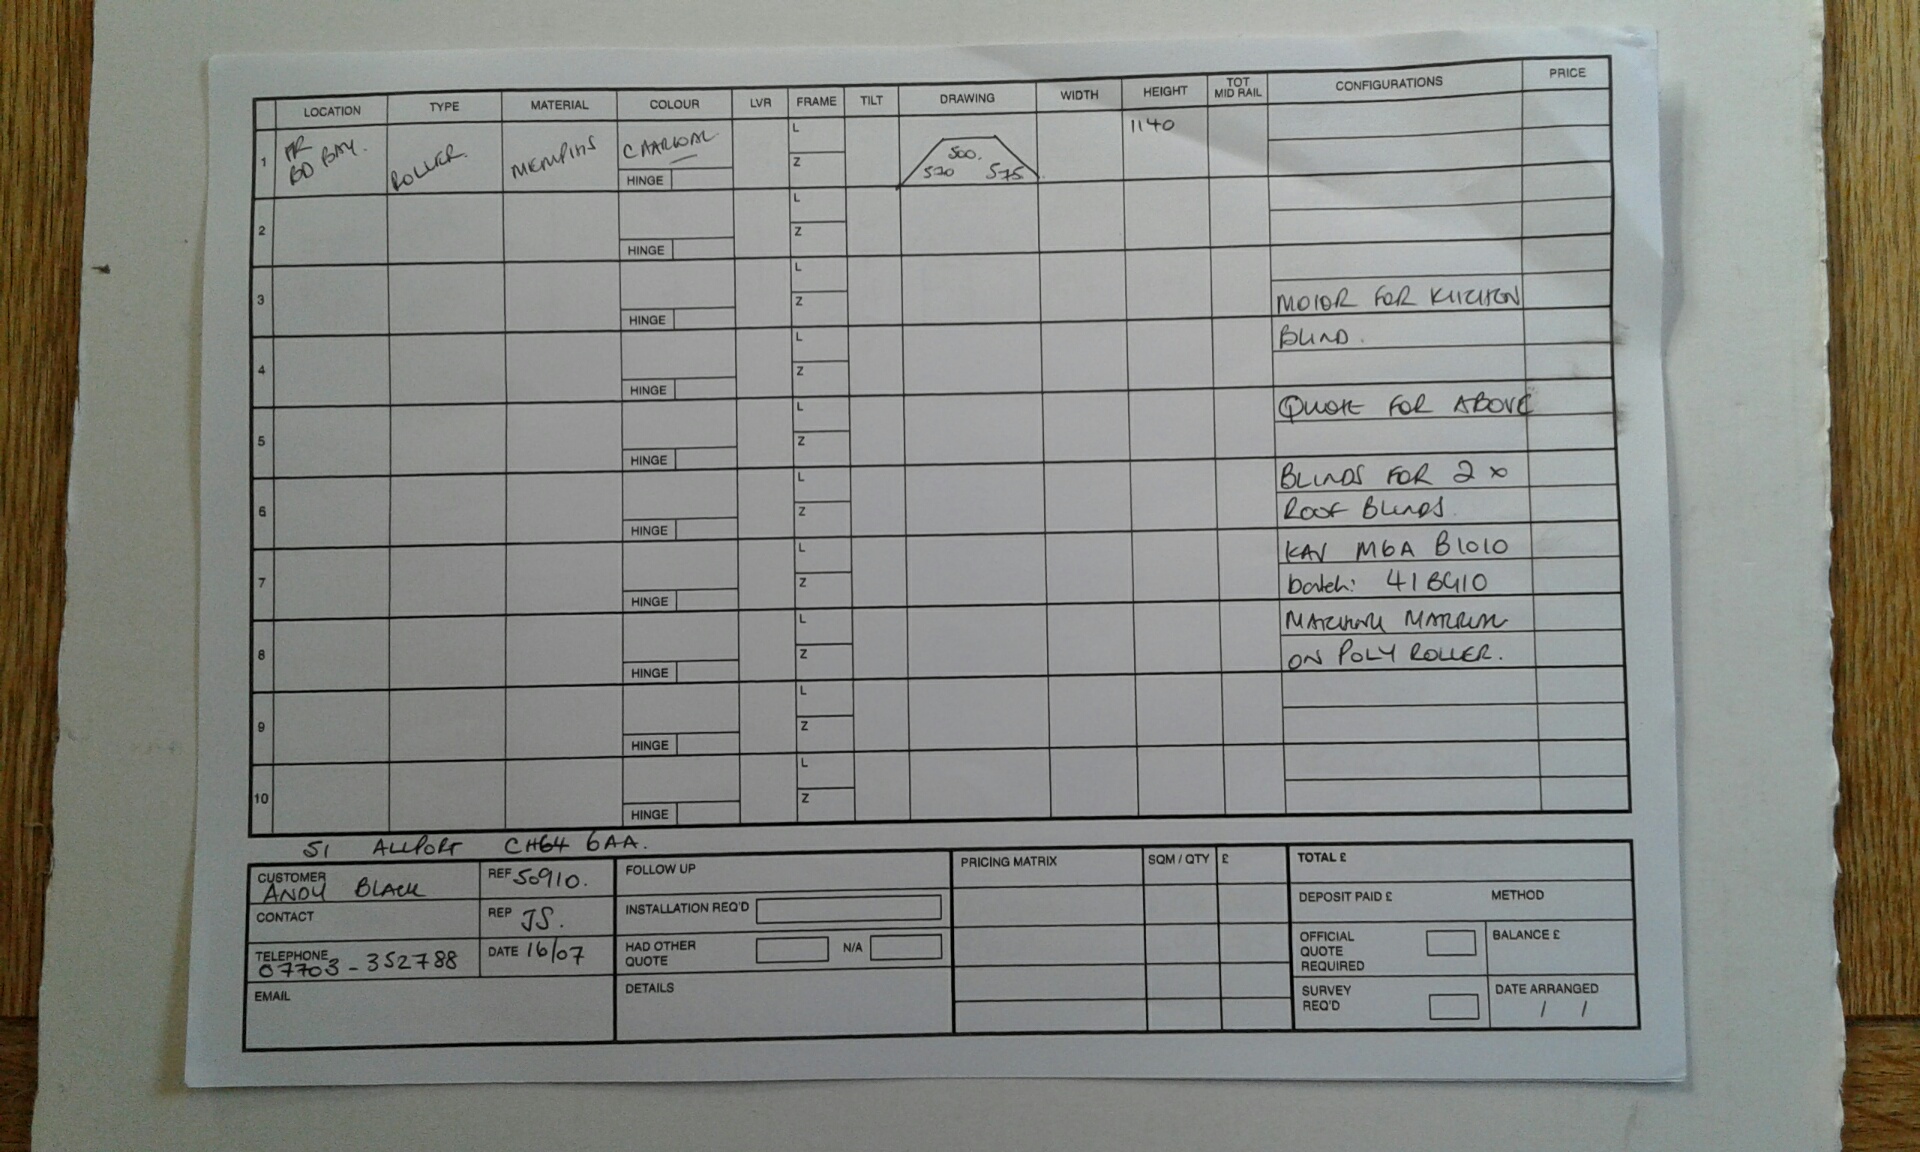 LOCATION TYPE MATERIAL COLOUR LVR FRAME TILT DRAWING WIDTH HEIGHT TOT MID RAIL CONFIGURATIONS PRICE
1 FR BD BAY. ROLLER. MEMPHIS CAARCOAL HINGE L Z 500. 520 575 1140
2 HINGE L Z
3 HINGE L Z MOTOR FOR KITCHEN
4 HINGE L Z BLIND.
5 HINGE L Z QUOTE FOR ABOVE
6 HINGE L Z BLINDS FOR 2 x
ROOF BLINDS.
7 HINGE L Z KAV M6A B1010
batch: 41BG10
8 HINGE L Z MATCHING MATERIAL
ON POLY ROLLER.
9 HINGE L Z
10 HINGE L Z
51 ALLPORT CH64 6AA.
CUSTOMER ANDY BLACK
REF 50910.
CONTACT
REP JS.
TELEPHONE 07703-352788
DATE 16/07
EMAIL
FOLLOW UP
INSTALLATION REQ'D
HAD OTHER QUOTE N/A
DETAILS
PRICING MATRIX SQM / QTY £
TOTAL £
DEPOSIT PAID £ METHOD
OFFICIAL QUOTE REQUIRED
BALANCE £
SURVEY REQ'D
DATE ARRANGED
/ /